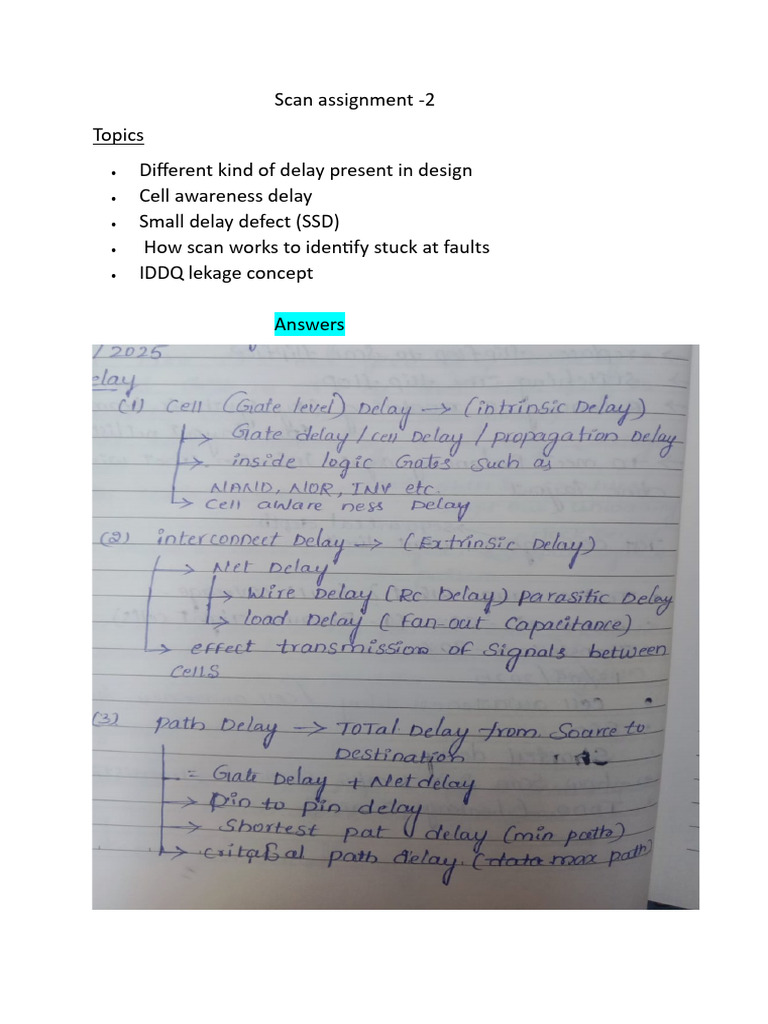 Scan assignment -2
Topics
• Different kind of delay present in design
• Cell awareness delay
• Small delay defect (SSD)
• How scan works to identify stuck at faults
• IDDQ lekage concept
Answers
/ 2025
elay
(1) Cell (Gate level) Delay → (intrinsic Delay)
→ Gate delay / cell Delay / propagation Delay
→ inside logic Gates such as
NAND, NOR, INV etc.
→ Cell aware ness Delay
(2) interconnect Delay → (Extrinsic Delay)
→ Net Delay
→ Wire Delay (RC Delay) parasitic Delay
→ Load Delay (Fan-out Capacitance)
→ effect transmission of signals between
cells
(3) Path Delay → Total Delay from Source to
Destination
= Gate Delay + Net delay
→ Pin to pin delay
→ Shortest pat delay (min path)
→ path delay (data max path)